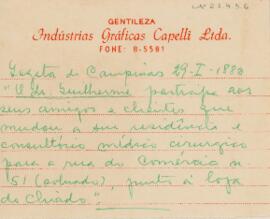 Nº 21456
GENTILEZA
Indústrias Gráficas Capelli Ltda.
FONE: 8-5581
Gazeta de Campinas 29-I-1882
"O Dr. Guilherme participa aos
seus amigos e clientes que
mudou a sua residência e
consultório médico cirurgico
para a rua do Comércio n
51 (sobrado), junto à loja
do Chuado".